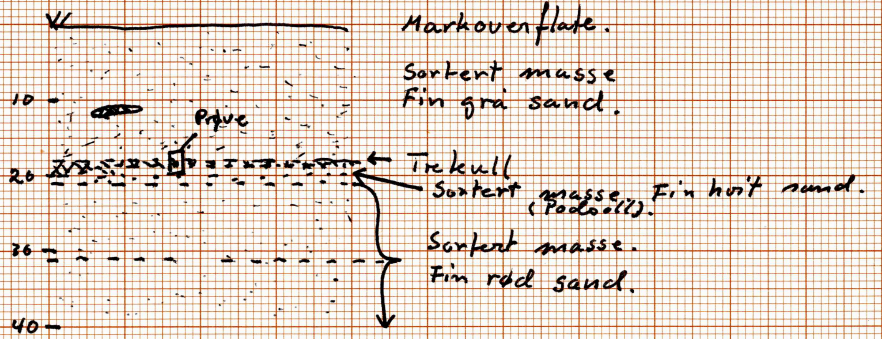 Markoverflate.
Sortert masse
Fin grå sand.
10
Prøve
Trekull
20
Sortert masse. Fin hvit sand.
(Podsoll).
30
Sortert masse.
Fin rød sand.
40